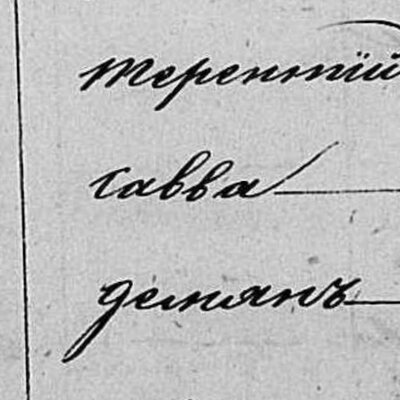 терентій
савва
демянъ